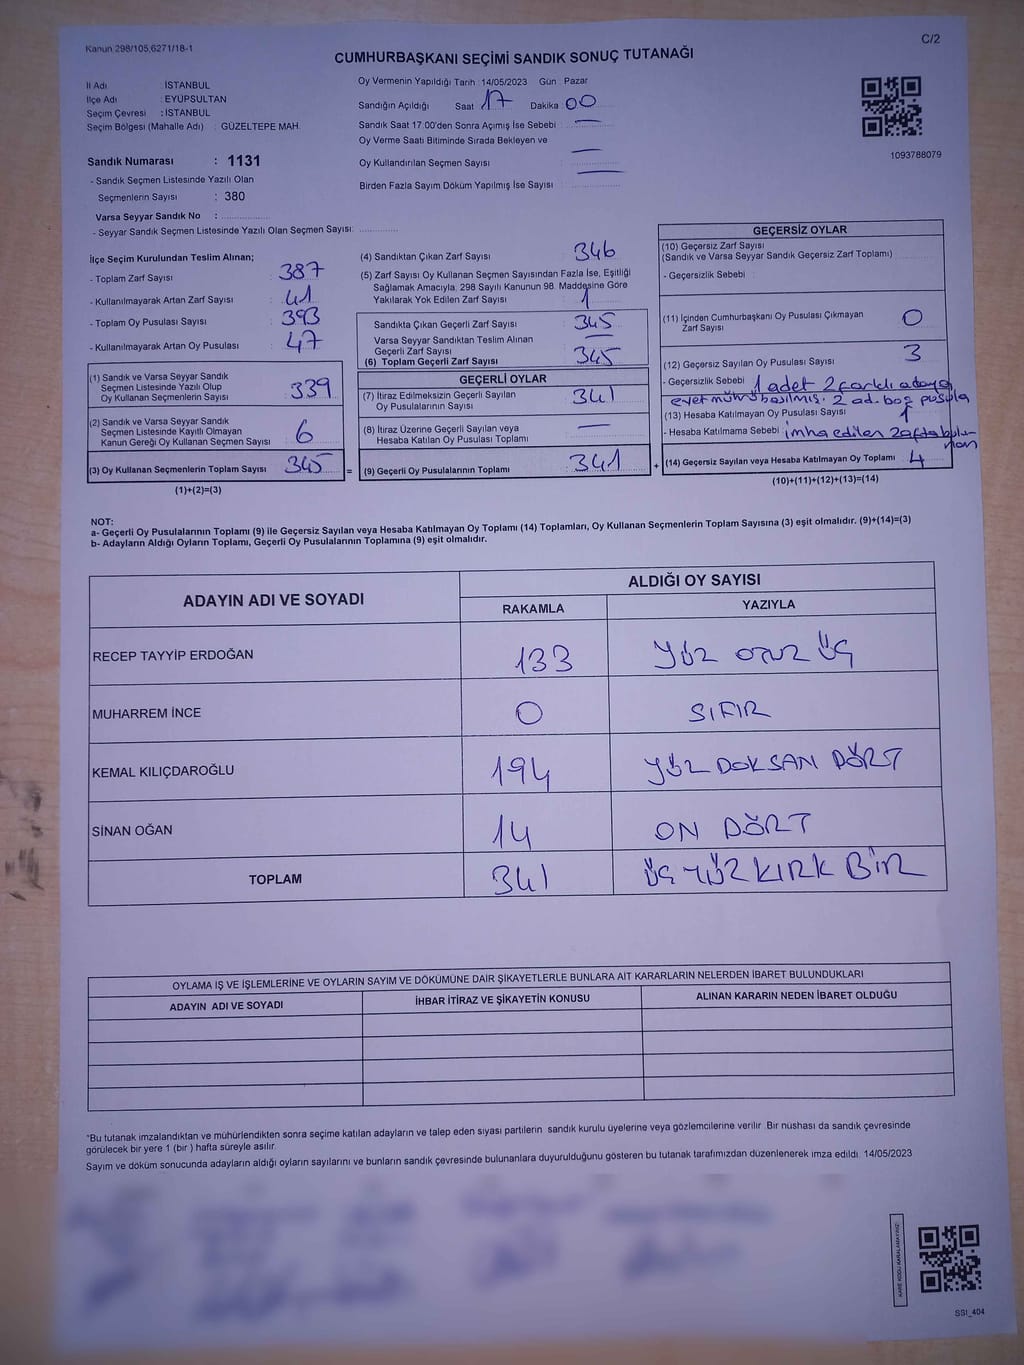 Kanun 298/105,6271/18-1
C/2
CUMHURBAŞKANI SEÇİMİ SANDIK SONUÇ TUTANAĞI
İl Adı : İSTANBUL
İlçe Adı : EYÜPSULTAN
Seçim Çevresi : İSTANBUL
Seçim Bölgesi (Mahalle Adı) : GÜZELTEPE MAH.
Sandık Numarası : 1131
- Sandık Seçmen Listesinde Yazılı Olan
Seçmenlerin Sayısı : 380
Varsa Seyyar Sandık No :
- Seyyar Sandık Seçmen Listesinde Yazılı Olan Seçmen Sayısı:
Oy Vermenin Yapıldığı Tarih : 14/05/2023 Gün : Pazar
Sandığın Açıldığı Saat 17 Dakika 00
Sandık Saat 17:00'den Sonra Açımış İse Sebebi : —
Oy Verme Saati Bitiminde Sırada Bekleyen ve
Oy Kullandırılan Seçmen Sayısı : —
Birden Fazla Sayım Döküm Yapılmış İse Sayısı : —
1093788079
İlçe Seçim Kurulundan Teslim Alınan;
- Toplam Zarf Sayısı : 387
- Kullanılmayarak Artan Zarf Sayısı : 41
- Toplam Oy Pusulası Sayısı : 393
- Kullanılmayarak Artan Oy Pusulası : 47
(1) Sandık ve Varsa Seyyar Sandık
Seçmen Listesinde Yazılı Olup
Oy Kullanan Seçmenlerin Sayısı : 339
(2) Sandık ve Varsa Seyyar Sandık
Seçmen Listesinde Kayıtlı Olmayan
Kanun Gereği Oy Kullanan Seçmen Sayısı : 6
(3) Oy Kullanan Seçmenlerin Toplam Sayısı : 345 =
(1)+(2)=(3)
(4) Sandıktan Çıkan Zarf Sayısı : 346
(5) Zarf Sayısı Oy Kullanan Seçmen Sayısından Fazla İse, Eşitliği
Sağlamak Amacıyla, 298 Sayılı Kanunun 98. Maddesine Göre
Yakılarak Yok Edilen Zarf Sayısı : 1
Sandıkta Çıkan Geçerli Zarf Sayısı : 345
Varsa Seyyar Sandıktan Teslim Alınan
Geçerli Zarf Sayısı : —
(6) Toplam Geçerli Zarf Sayısı : 345
GEÇERLİ OYLAR
(7) İtiraz Edilmeksizin Geçerli Sayılan
Oy Pusulalarının Sayısı : 341
(8) İtiraz Üzerine Geçerli Sayılan veya
Hesaba Katılan Oy Pusulası Toplamı : —
(9) Geçerli Oy Pusulalarının Toplamı : 341 +
GEÇERSİZ OYLAR
(10) Geçersiz Zarf Sayısı
(Sandık ve Varsa Seyyar Sandık Geçersiz Zarf Toplamı)
- Geçersizlik Sebebi :
(11) İçinden Cumhurbaşkanı Oy Pusulası Çıkmayan
Zarf Sayısı 0
(12) Geçersiz Sayılan Oy Pusulası Sayısı 3
- Geçersizlik Sebebi : 1 adet 2 farklı adaya
evet mührü basılmış. 2 ad. boş pusula
(13) Hesaba Katılmayan Oy Pusulası Sayısı 1
- Hesaba Katılmama Sebebi : imha edilen zafta bulu
nan
(14) Geçersiz Sayılan veya Hesaba Katılmayan Oy Toplamı 4
(10)+(11)+(12)+(13)=(14)
NOT:
a- Geçerli Oy Pusulalarının Toplamı (9) ile Geçersiz Sayılan veya Hesaba Katılmayan Oy Toplamı (14) Toplamları, Oy Kullanan Seçmenlerin Toplam Sayısına (3) eşit olmalıdır. (9)+(14)=(3)
b- Adayların Aldığı Oyların Toplamı, Geçerli Oy Pusulalarının Toplamına (9) eşit olmalıdır.
ADAYIN ADI VE SOYADI
ALDIĞI OY SAYISI
RAKAMLA YAZIYLA
RECEP TAYYİP ERDOĞAN 133 YÜZ OTUZ ÜÇ
MUHARREM İNCE 0 SIFIR
KEMAL KILIÇDAROĞLU 194 YÜZ DOKSAN DÖRT
SİNAN OĞAN 14 ON DÖRT
TOPLAM 341 ÜÇ YÜZ KIRK BİR
OYLAMA İŞ VE İŞLEMLERİNE VE OYLARIN SAYIM VE DÖKÜMÜNE DAİR ŞİKAYETLERLE BUNLARA AİT KARARLARIN NELERDEN İBARET BULUNDUKLARI
ADAYIN ADI VE SOYADI İHBAR İTİRAZ VE ŞİKAYETİN KONUSU ALINAN KARARIN NEDEN İBARET OLDUĞU
*Bu tutanak imzalandıktan ve mühürlendikten sonra seçime katılan adayların ve talep eden siyasi partilerin sandık kurulu üyelerine veya gözlemcilerine verilir. Bir nüshası da sandık çevresinde
görülecek bir yere 1 (bir ) hafta süreyle asılır.
Sayım ve döküm sonucunda adayların aldığı oyların sayılarını ve bunların sandık çevresinde bulunanlara duyurulduğunu gösteren bu tutanak tarafımızdan düzenlenerek imza edildi. 14/05/2023
KARE KODU KARALAMAYINIZ!
SSI_404